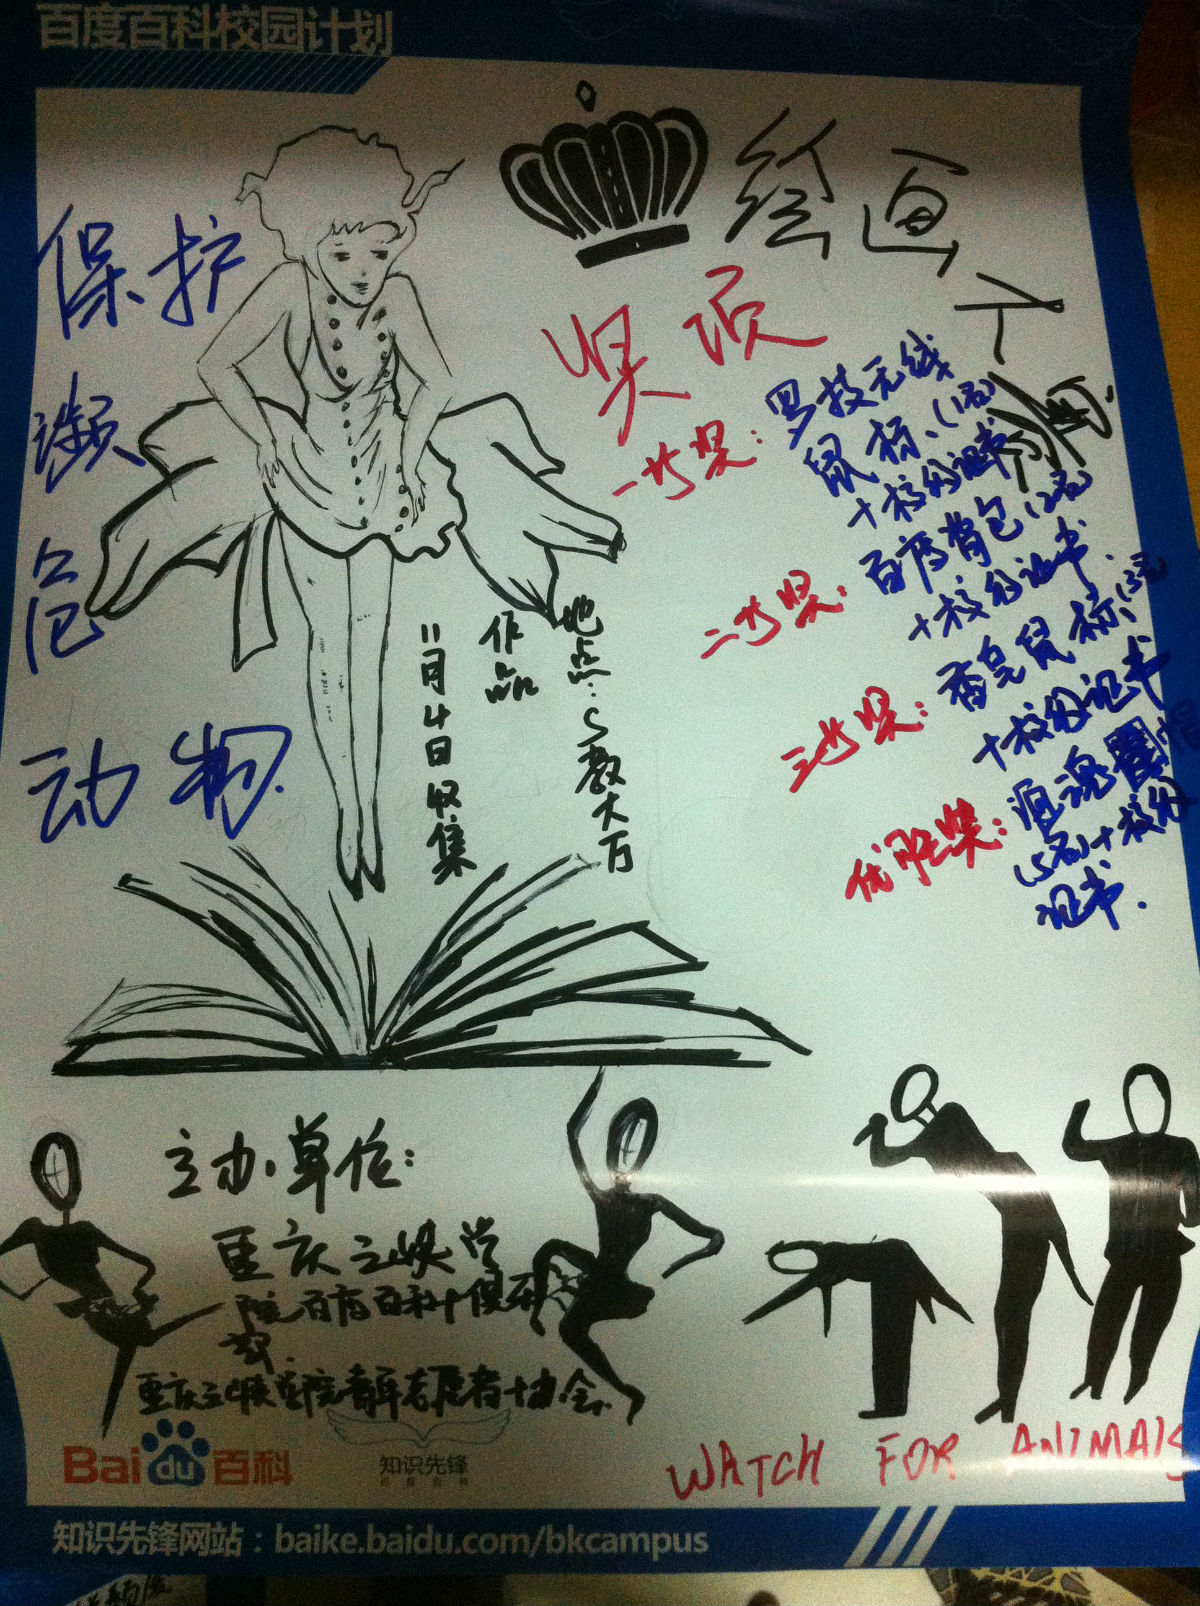 百度百科校园计划
保护
濒
危
动物
绘画大
奖项
一等奖：罗技无线
鼠标(1名)
+校级证书
二等奖：百度背包(2名)
+校级证书
三等奖：鼠标(3名)
+校级证书
优胜奖：
(5名)+校级
证书.
地点：S教大厅
作品
11月4日收集
主办单位：
重庆三峡学
院百度百科俱乐
部
重庆三峡学院青年志愿者协会
Bai du 百科
知识先锋
百度百科
WATCH FOR ANIMALS
知识先锋网站：baike.baidu.com/bkcampus